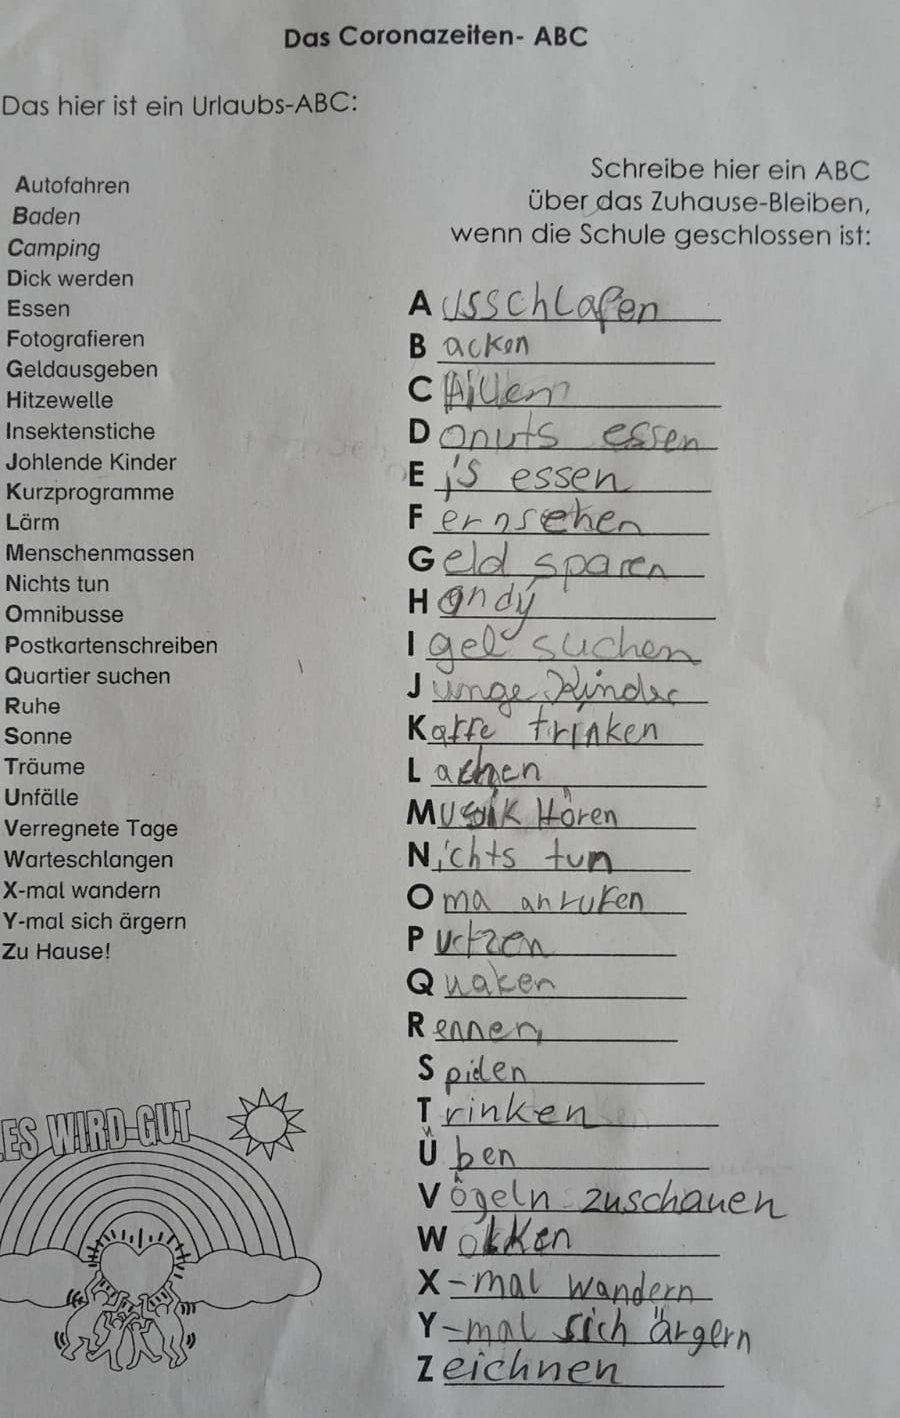 Das Coronazeiten- ABC
Das hier ist ein Urlaubs-ABC:
Autofahren
Baden
Camping
Dick werden
Essen
Fotografieren
Geldausgeben
Hitzewelle
Insektenstiche
Johlende Kinder
Kurzprogramme
Lärm
Menschenmassen
Nichts tun
Omnibusse
Postkartenschreiben
Quartier suchen
Ruhe
Sonne
Träume
Unfälle
Verregnete Tage
Warteschlangen
X-mal wandern
Y-mal sich ärgern
Zu Hause!
Schreibe hier ein ABC
über das Zuhause-Bleiben,
wenn die Schule geschlossen ist:
Ausschlafen
Backen
Chillen
Donuts essen
Eis essen
Fernsehen
Geld sparen
Handy
Igel suchen
Junge Kinder
Kaffe trinken
Lachen
Musik Hören
Nichts tun
Oma anrufen
Putzen
Quaken
Rennen
Spielen
Trinken
Üben
Vögeln zuschauen
Wokken
X-mal wandern
Y-mal sich ärgern
Zeichnen
ES WIRD GUT